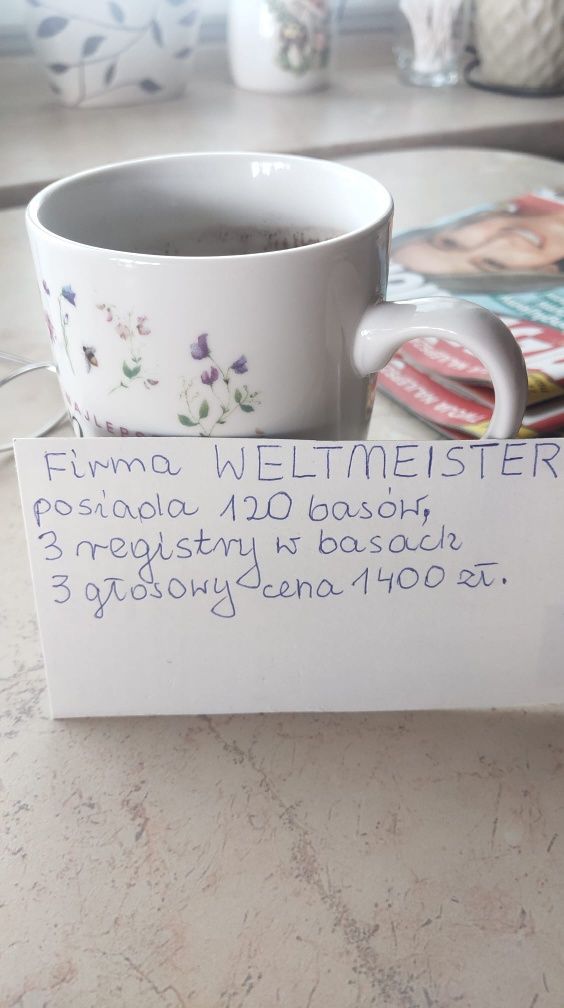 Firma WELTMEISTER
posiada 120 basów,
3 registry w basach
3 głosowy cena 1400 zł.